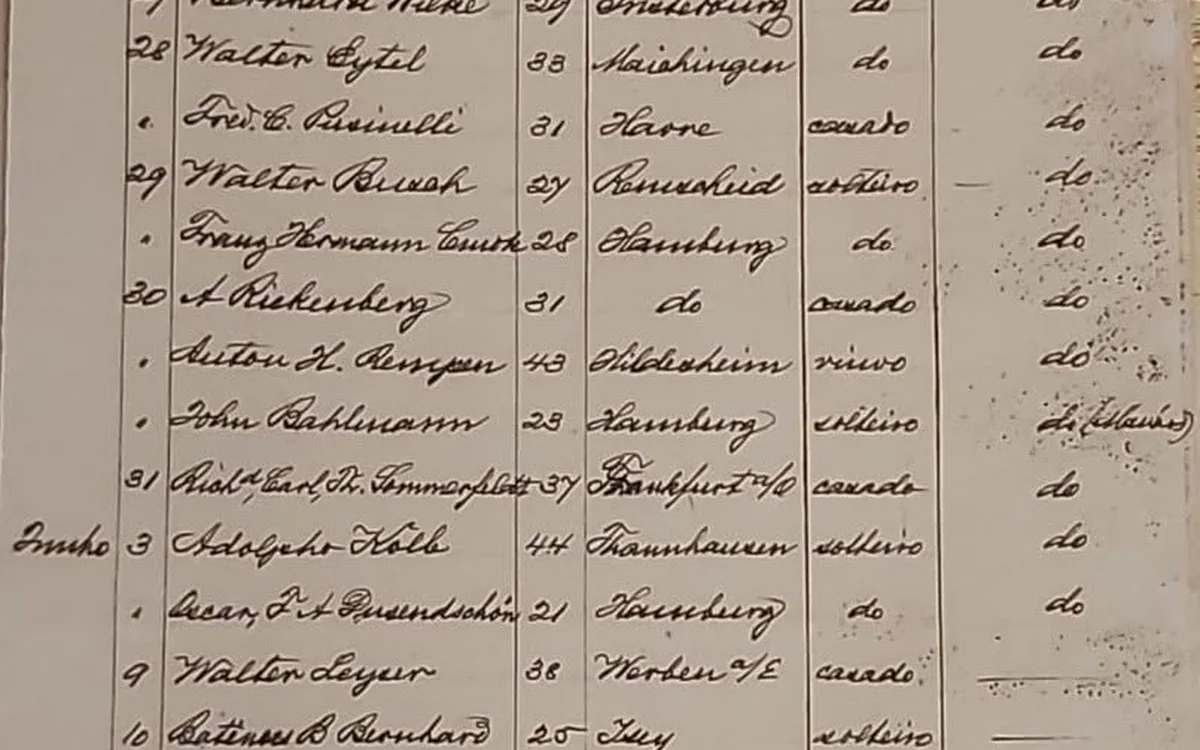 29 do do
28 Walter Eytel 33 Maichingen do do
" Fred. C. Pusinelli 31 Havre casado do
29 Walter Busch 27 Remscheid solteiro — do
" Franz Hermann 28 Hamburg do do
30 A Riekenberg 31 do casado do
" Anton H. Rempen 43 Hildesheim viuvo do
" John Bahlmann 23 Hamburg solteiro do (Manáos)
31 Richd, Carl, Th. Sommerfeldt 37 Frankfurt a/O casado do
Junho 3 Adolpho Kolb 44 Thannhausen solteiro do
" Oscar, F A Pusendschön 21 Hamburg do do
9 Walter Leyser 38 Werben a/E casado —
10 B Bernhard 25 solteiro —